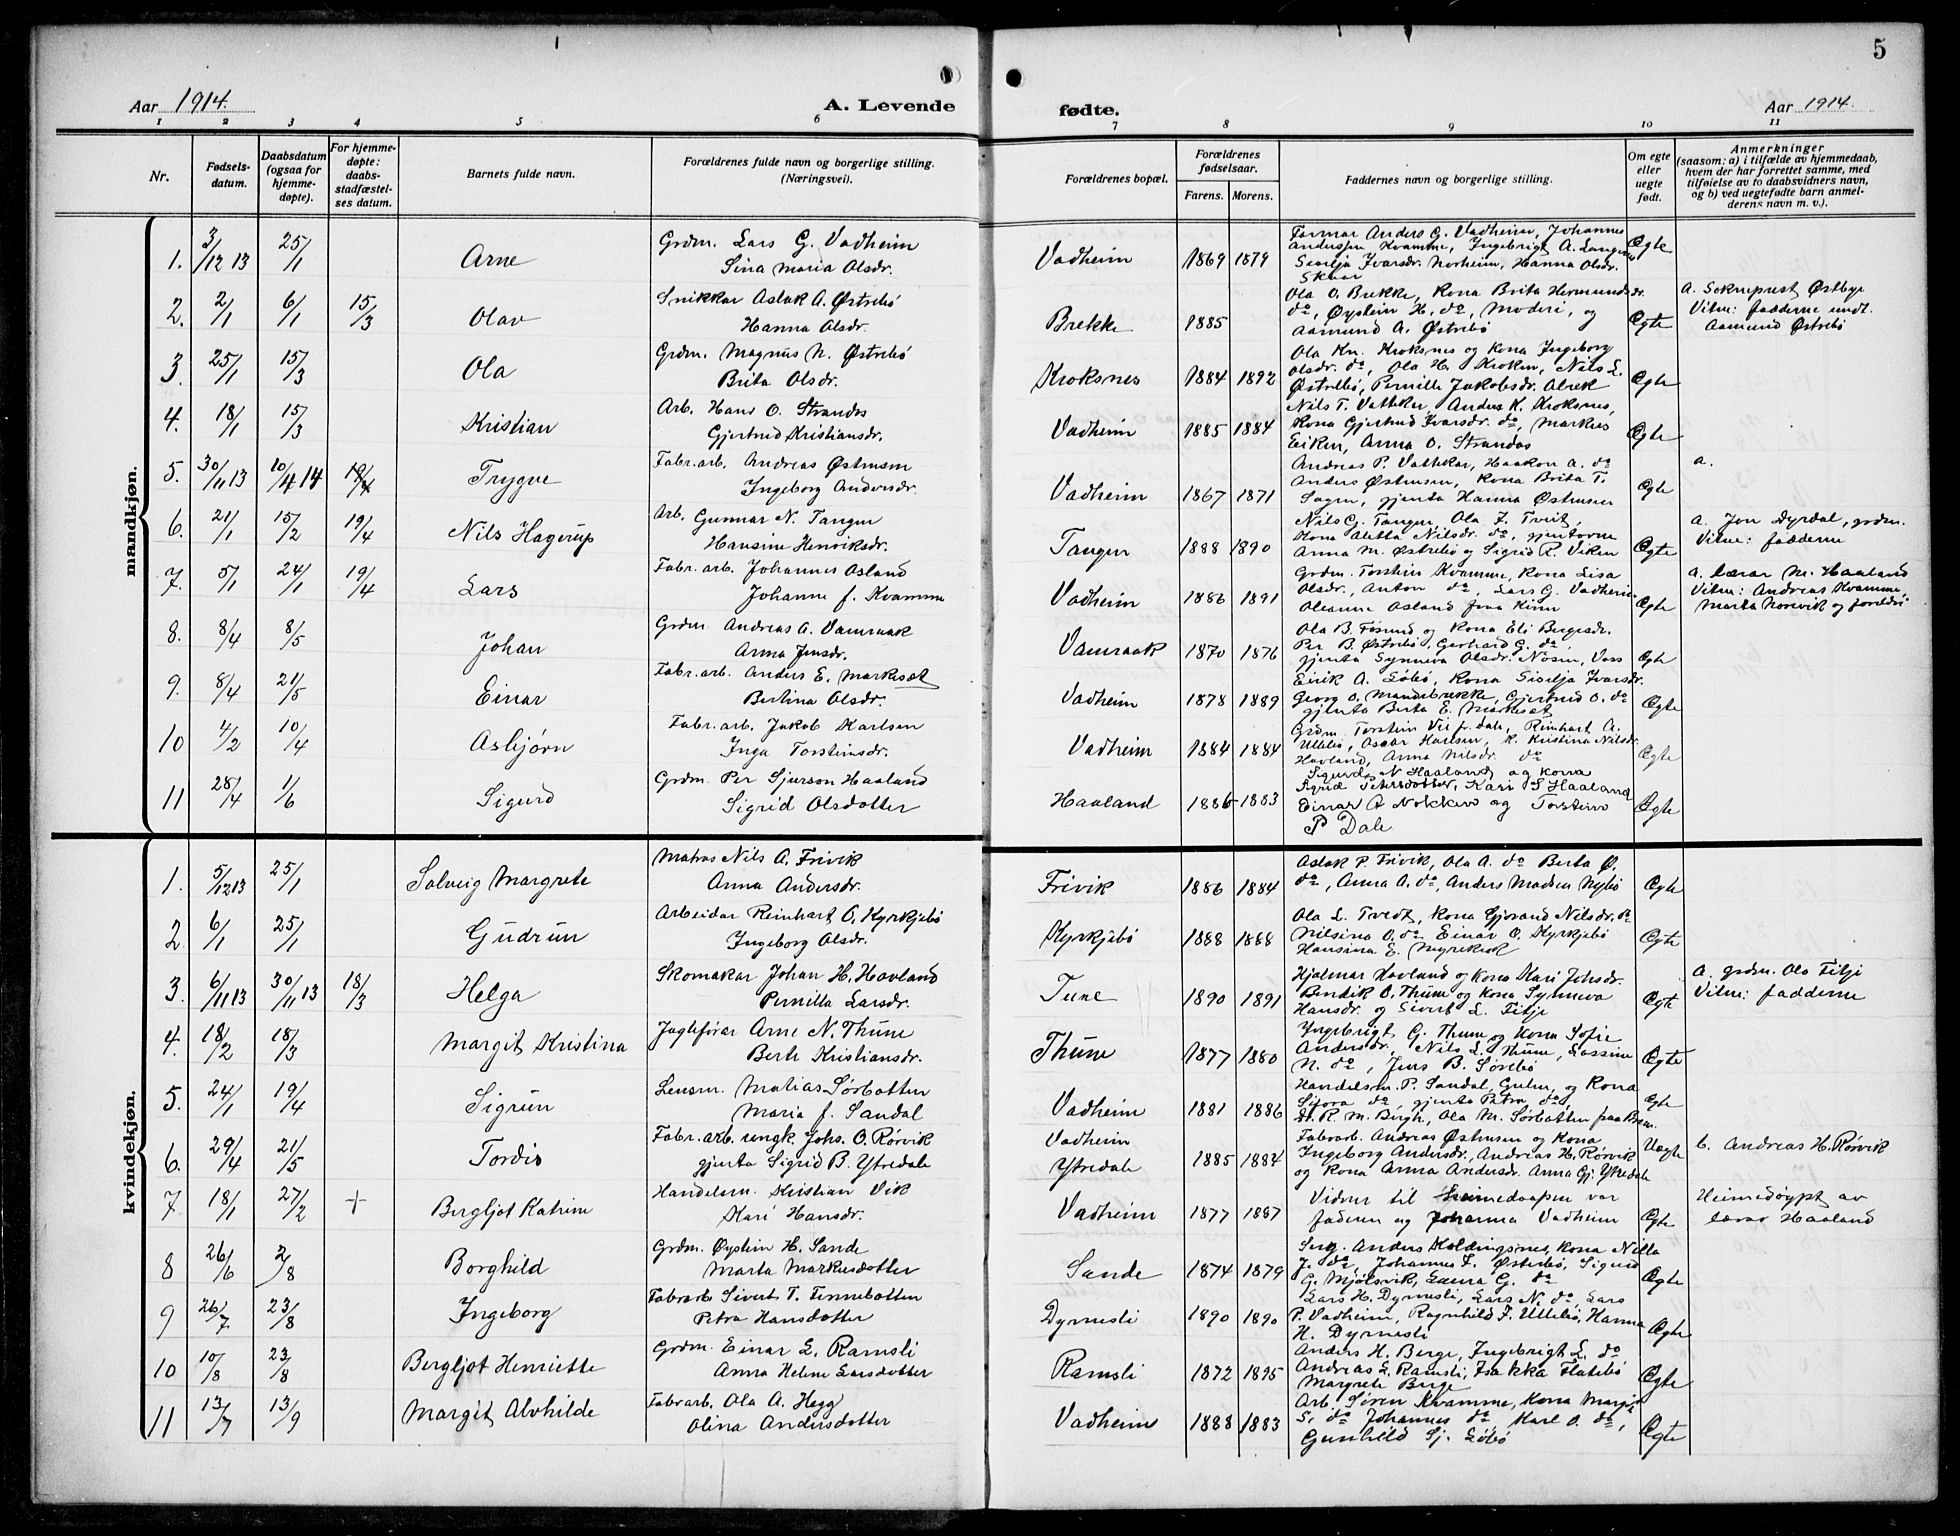 5
Aar 1914.
A. Levende fødte.
Aar 1914.
1 2 3 4 5 6 7 8 9 10 11
Nr.
Fødsels-
datum.
Daabsdatum
(ogsaa for
hjemme-
døpte).
For hjemme-
døpte:
daabs-
stadfæstel-
ses datum.
Barnets fulde navn.
Forældrenes fulde navn og borgerlige stilling.
(Næringsvei).
Forældrenes bopæl.
Forældrenes
fødselsaar.
Farens. Morens.
Faddernes navn og borgerlige stilling.
Om egte
eller
uegte
født.
Anmerkninger
(saasom: a) i tilfælde av hjemmedaab,
hvem der har forrettet samme, med
tilføielse av to daabsvidners navn,
og b) ved uegtefødte barn anmel-
derens navn m. v.).
mandkjøn.
1. 3/12 13 25/1 Arne Grdm. Lars G. Vadheim
Sina Maria Olsdr.
Vadheim 1869 1879 Farmar Anders G. Vadheim, Johannes
Anderssen Kvamme, Ingebrigt A.
Siselja Ivarsdr. Norheim, Hanna Olsdr.
Skaar
Ægte
2. 2/1 6/1 15/3 Olav Snikkar Aslak A. Østrebø
Hanna Olsdr.
Brekke 1885 Ola O. Brekke, Kona Brita Hermundsdr.
do, Øystein H. do, Moderi, og
Aamund A. Østrebø
Ægte
a. Sokneprest Østbye
Vitne: fadderne undt.
Aamund Østrebø
3. 25/1 15/3 Ola Grdm. Magnus N. Østrebø
Brita Olsdr.
Kroksnes 1884 1892 Ola Kn. Kroksnes og Kona Ingeborg
Olsdr. do, Ola H. Kroken, Nils L.
Østrebø, Pernille Jakobsdr.
Ægte
4. 18/1 15/3 Kristian Arb. Hans O. Strandos
Gjertrud Kristiansdr.
Vadheim 1885 1884 Nils T. Vattekar, Anders K. Kroksnes,
Kona Gjertrud Ivarsdr. do, Markus
Eiken, Anna O. Strandos
Ægte
5. 30/11 13 10/4 14 19/4 Trygve Fabr. arb. Andreas Østensen
Ingeborg Andersdr.
Vadheim 1867 1871 Andreas P. Vattekar, Haakon A. do
Anders Østensen, Kona Brita T.
Sagen, gjenta Hanna Østensen
Ægte
a.
6. 21/1 15/2 19/4 Nils Hagerup Arb. Gunnar N. Tangen
Hansine Henriksdr.
Tangen 1888 1890 Nils G. Tangen, Ola J. Tveit,
Kona Aletta Nilsdr. do, gjentorne
Anna M. Østrebø og Sigrid R. Viken
Ægte
a. Jon Dyrdal, grdm.
Vitne: fadderne
7. 5/1 24/1 19/4 Lars Fabr. arb. Johannes Asland
Johanne f. Kvamme
Vadheim 1886 1891 Grdm. Torstein Kvamme, Kona Lisa
Olsdr., Anton do, Lars G. Vadheim
Oleanne Asland fraa Kinn
Ægte
a. lærar M. Haaland
Vitne: Andreas Kvamme,
Marta Norvik og foreldri
8. 8/4 8/5 Johan Grdm. Andreas A. Vamraak
Anna Jensdr.
Vamraak 1870 1876 Ola B. Fosund og Kona Eli Bergesdr.
Per B. Østrebø, Gerhard G. do,
gjenta Synneva Olsdr. Nosen, Voss
Ægte
9. 8/4 21/5 Einar Fabr. arb. Anders E. Markeset
Bertina Olsdr.
Vadheim 1878 1889 Eirik A. Søbø, Kona Siselja Ivarsdr.
Georg O. Mandsbrekke, Gjertrud O. do
gjenta Berta E. Markeset
Ægte
10 4/2 10/4 Asbjørn Fabr. arb. Jakob Karlsen
Inga Torsteinsdr.
Vadheim 1884 1884 Grdm. Torstein Vee f. Dale, Reinhart A.
Ullebø, Oscar Hansen, K. Kristina Nilsdr.
Havland, Anna Nilsdr. do
Ægte
11 28/4 1/6 Sigurd Grdm. Per Sjurson Haaland
Sigrid Olsdotter
Haaland 1886 1883 Sigurd N Haaland og Kona
Sigrid Petersdotter, Kari S Haaland
Einar A Nokken og Torstein
P Dale
Ægte
kvindekjøn.
1. 5/12 13 25/1 Solveig Margrete Matros Nils A. Frivik
Anna Andersdr.
Frivik 1886 1884 Aslak P. Frivik, Ola A. do Berta Ø.
do, Anna A. do, Anders Madsen Nybø
Ægte
2. 6/1 25/1 Gudrun Arbeidar Reinhart O. Kyrkjebø
Ingeborg Olsdr.
Kyrkjebø 1888 1888 Ola L. Tvedt, Kona Gjørand Nilsdr. do
Nilsina O. do Einar O. Kyrkjebø
Hansina E.
Ægte
3. 6/11 13 30/11 13 18/3 Helga Skomakar Johan H. Havland
Pernilla Larsdr.
Tune 1890 1891 Hjalmar Havland og Kona Kari Johsdr.
Bendik O. Thune og Kona Synneva
Hansdr. og Sivert L. Fitje
Ægte
a. grdm. Ole Fitje
Vitne: fadderne
4. 18/2 18/3 Margit Kristina Jagtefører Arne N. Thune
Berte Kristiansdr.
Thune 1877 1880 Ingebrigt G. Thune og Kona Sofie
Andersdr., Nils L. Thune, Lassine
N. do, Jens B. Sørebø
Ægte
5. 24/1 19/4 Sigrun Lensm. Matias Sørbotten
Maria f. Sandal
Vadheim 1881 1886 Handelsm. P. Sandal, Gulen, og Kona
Sifora do, gjenta Petra do,
St. R. M. Bergh, Ola M. Sørbotten
Ægte
6. 29/4 21/5 Tordis Fabr. arb. ungk. Johs. O. Rørvik
gjenta Sigrid B. Ytredale
Vadheim
Ytredale 1885 1884 Fabrarb. Andreas Østensen og Kona
Ingeborg Andersdr., Andreas H. Rørvik
og Kona Anna Andersdr. Anna Gj. Ytredale
Uægte
b. Andreas H. Rørvik
7 18/1 27/2 + Bergljot Katrine Handelsm. Kristian Vik
Kari Hansdr.
Vadheim 1877 1887 Vidner til heimedaapen var
faderen og Johanna Vadheim
Ægte
Heimedøypt av
lærar Haaland
8 26/6 2/8 Borghild Grdm. Øystein H. Sande
Marta Markusdotter
Sande 1874 1879 Serg. Anders Holdingsnes, Kona Nilla
J. do, Johannes L. Østerbø, Sigurd
G. Mjølsvik, Laura G. do
Ægte
9 26/7 23/8 Ingeborg Fabrarb Sivert T. Tennebotten
Petra Hansdotter
Dyrnesli 1890 1890 Lars H. Dyrnesli, Lars N. do, Lars
P. Vadheim, Ragnhild F. Ullebø, Hanna
H. Dyrnesli
Ægte
10 10/8 23/8 Bergljot Henriette Grdm. Einar L. Ramsli
Anna Helene Larsdotter
Ramsli 1872 1895 Anders H. Berge, Ingebrigt L. do
Andreas L. Ramsli, Isakka Flatebø
Margrete Berge
Ægte
11 13/7 13/9 Margit Alvhilde Fabrarb. Ola A. Hegg
Olina Andersdotter
Vadheim 1888 1883 Arb. Søren Kvamme, Kona Margit
S. do Johannes do, Karl O. do,
Gunhild Sj. Søbø
Ægte